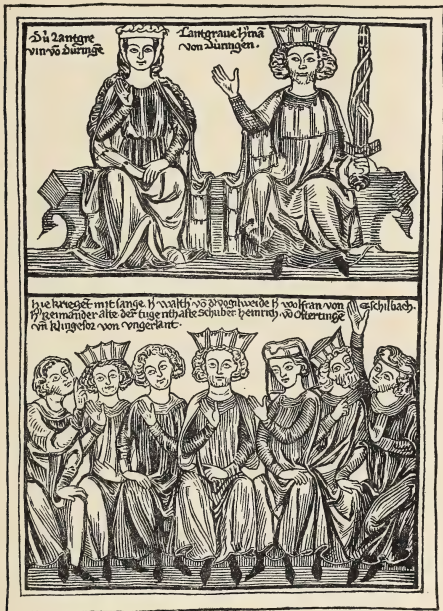 Dú Lantgre
vin vō Dúringe
Lantgraue h'mā
von Dúringen.
Hie krieget mit sange h' walth' vō d' vogilweide h' wolfran von Eschilbach.
h' Reimander alte der tugenthafte Schriber Heinrich vō Oftertinge
vn̄ Klingesor von vngerlant.